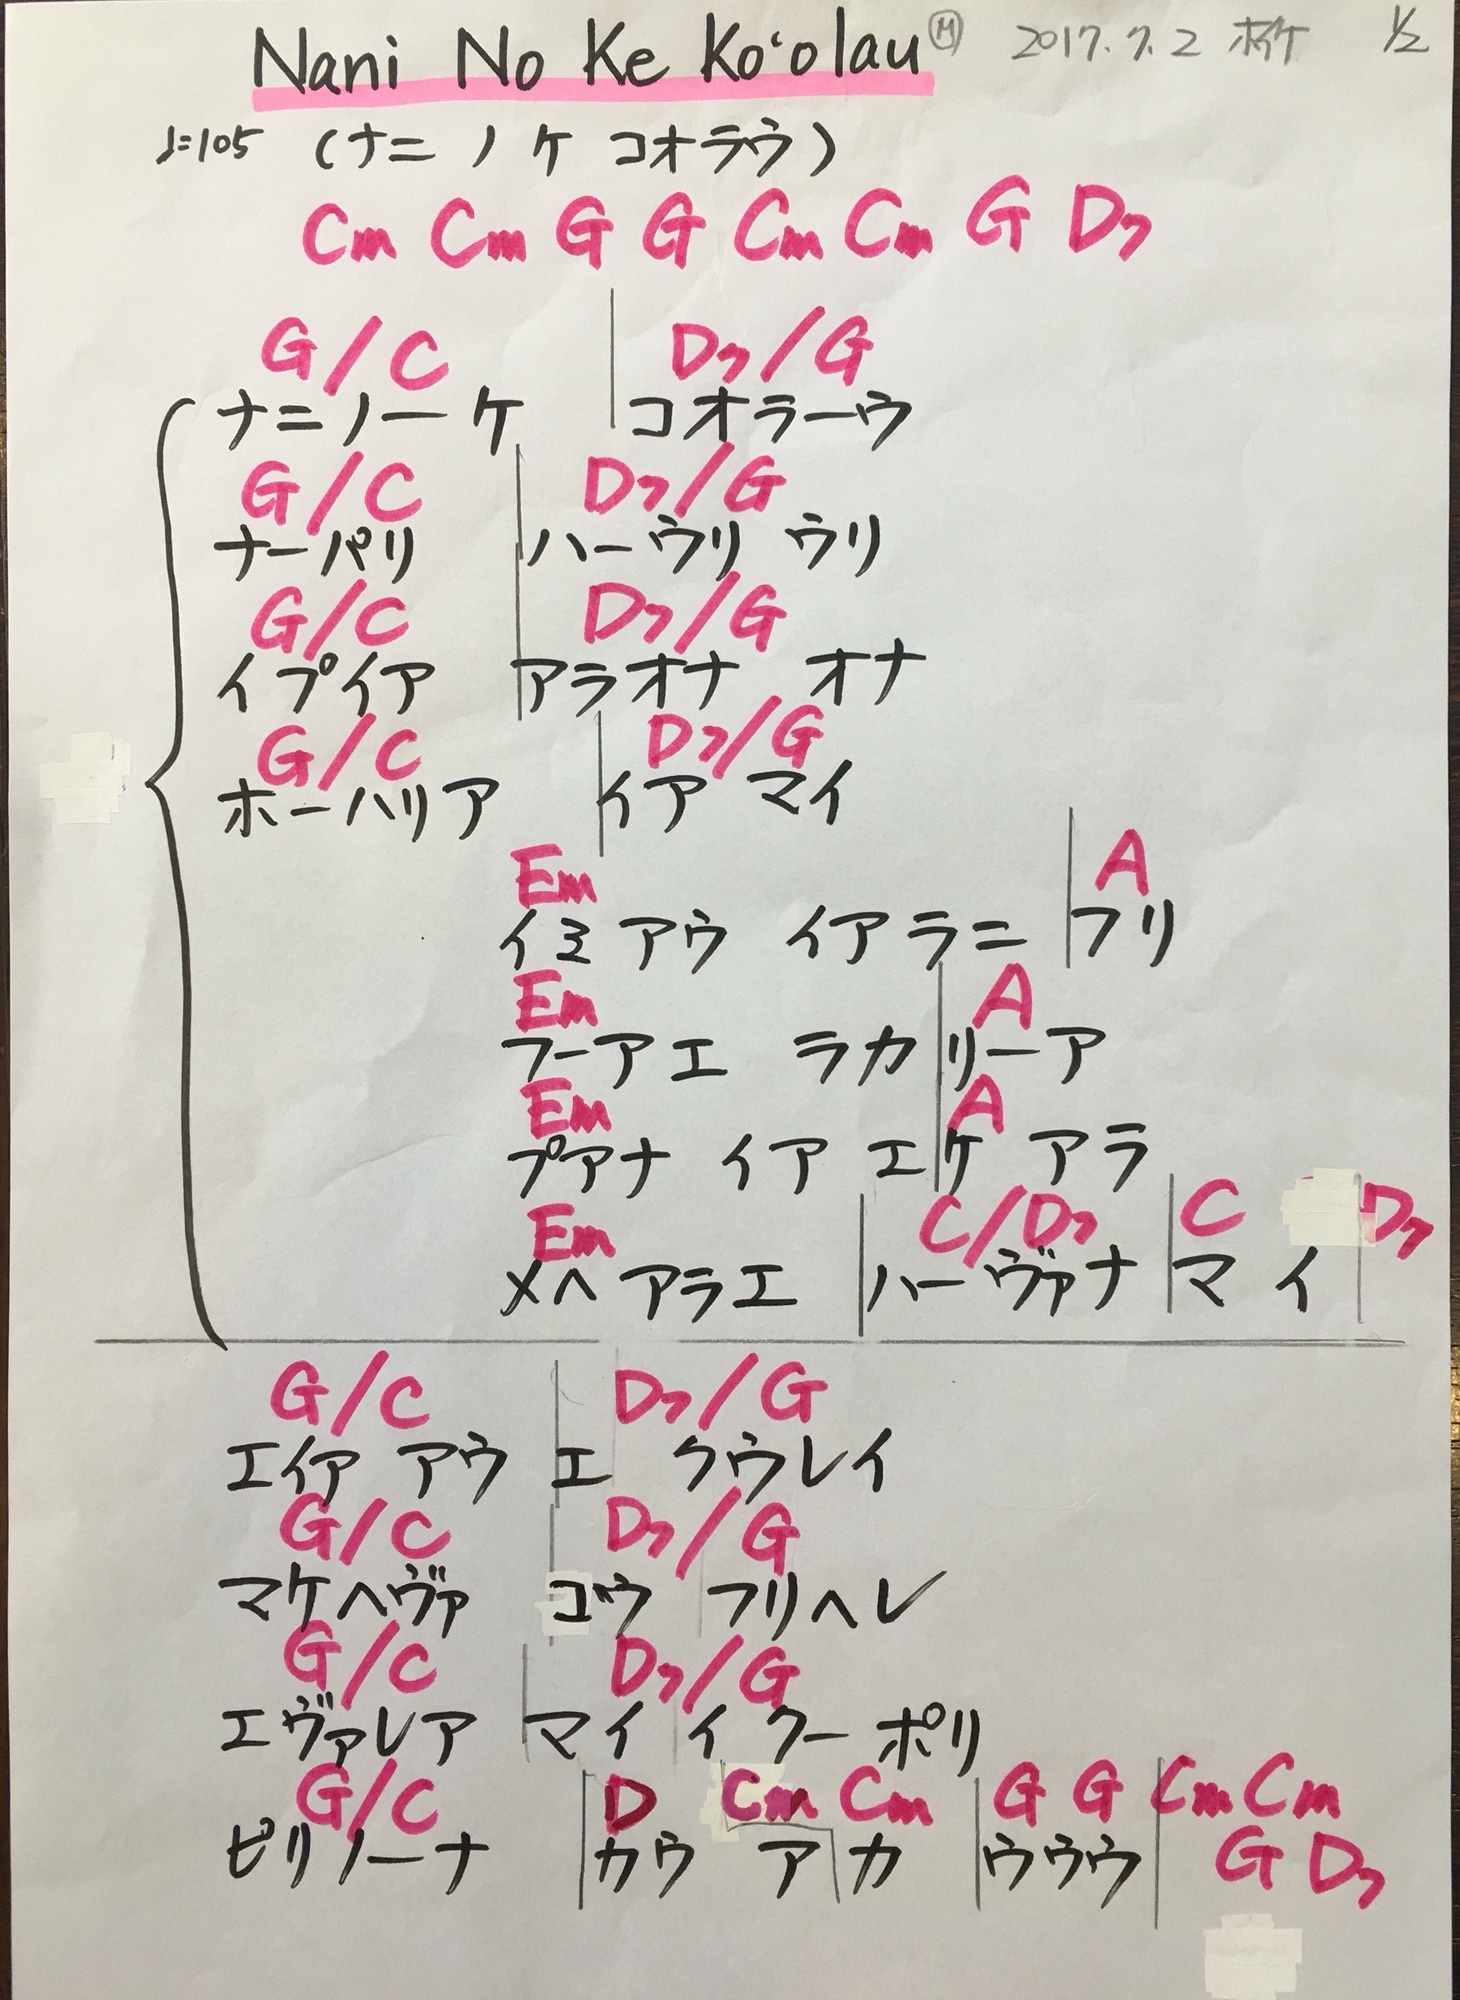 Nani No Ke Ko‘olau Ⓜ 2017.7.2 ホイケ 1/2
♩=105 (ナニ ノ ケ コオラウ)
Cm Cm G G Cm Cm G D7
G/C D7/G
ナニノーケ コオラーウ
G/C D7/G
ナーパリ ハーウリ ウリ
G/C D7/G
イプイア アラオナ オナ
G/C D7/G
ホーハリア イア マイ
Em A
イミ アウ イアラニ フリ
Em A
フーアエ ラカリーア
Em A
プアナ イア エケ アラ
Em C/D7 C D7
メヘ アラエ ハーヴァナ マイ
G/C D7/G
エイア アウ エ クウレイ
G/C D7/G
マケヘヴァ コウ フリヘレ
G/C D7/G
エヴァレア マイ イ クー ポリ
G/C D Cm Cm G G Cm Cm
ピリノーナ カウ ア カ ウウウ G D7